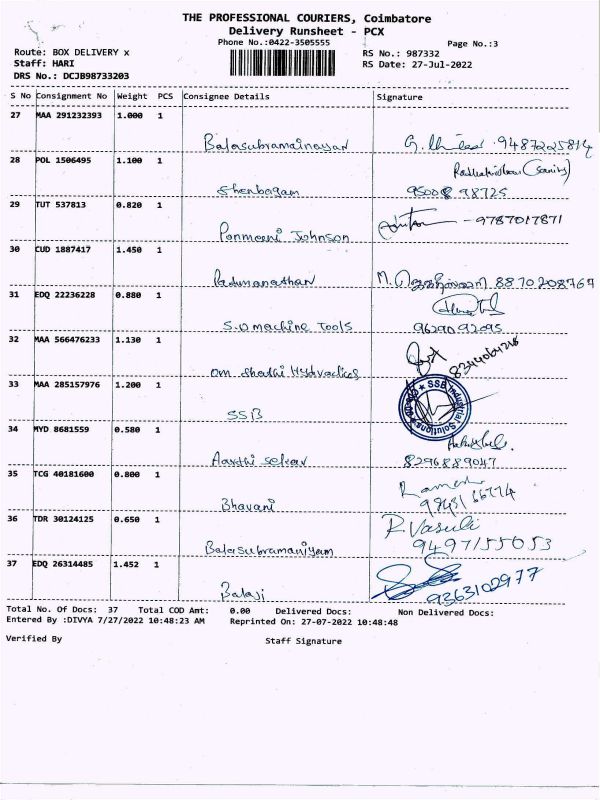 THE PROFESSIONAL COURIERS, Coimbatore
Delivery Runsheet - PCX
Phone No.:0422-3505555
Page No.:3
Route: BOX DELIVERY x
RS No.: 987332
Staff: HARI
RS Date: 27-Jul-2022
DRS No.: DCJB98733203
S No Consignment No Weight PCS Consignee Details Signature
27 MAA 291232393 1.000 1
Balasubramainayan 9487225814
28 POL 1506495 1.100 1
Shenbagam 95008 98725
29 TUT 537813 0.820 1
Ponmani Johnson - 9787017871
30 CUD 1887417 1.450 1
Padmanathan M. 8870208769
31 EDQ 22236228 0.880 1
S.D machine Tools 9629092095
32 MAA 566476233 1.130 1
om Shathi Hydraulics
33 MAA 285157976 1.200 1
SSB SSB Industrial Solutions
34 MYD 8681559 0.580 1
Aarthi Selvan 8296889047
35 TCG 40181600 0.800 1
Bhavani Ramesh
36 TDR 30124125 0.650 1
Balasubramaniyam R. Vasuki 9497155053
37 EDQ 26314485 1.452 1
Balaji 9363102977
Total No. Of Docs: 37 Total COD Amt: 0.00 Delivered Docs: Non Delivered Docs:
Entered By :DIVYA 7/27/2022 10:48:23 AM Reprinted On: 27-07-2022 10:48:48
Verified By Staff Signature